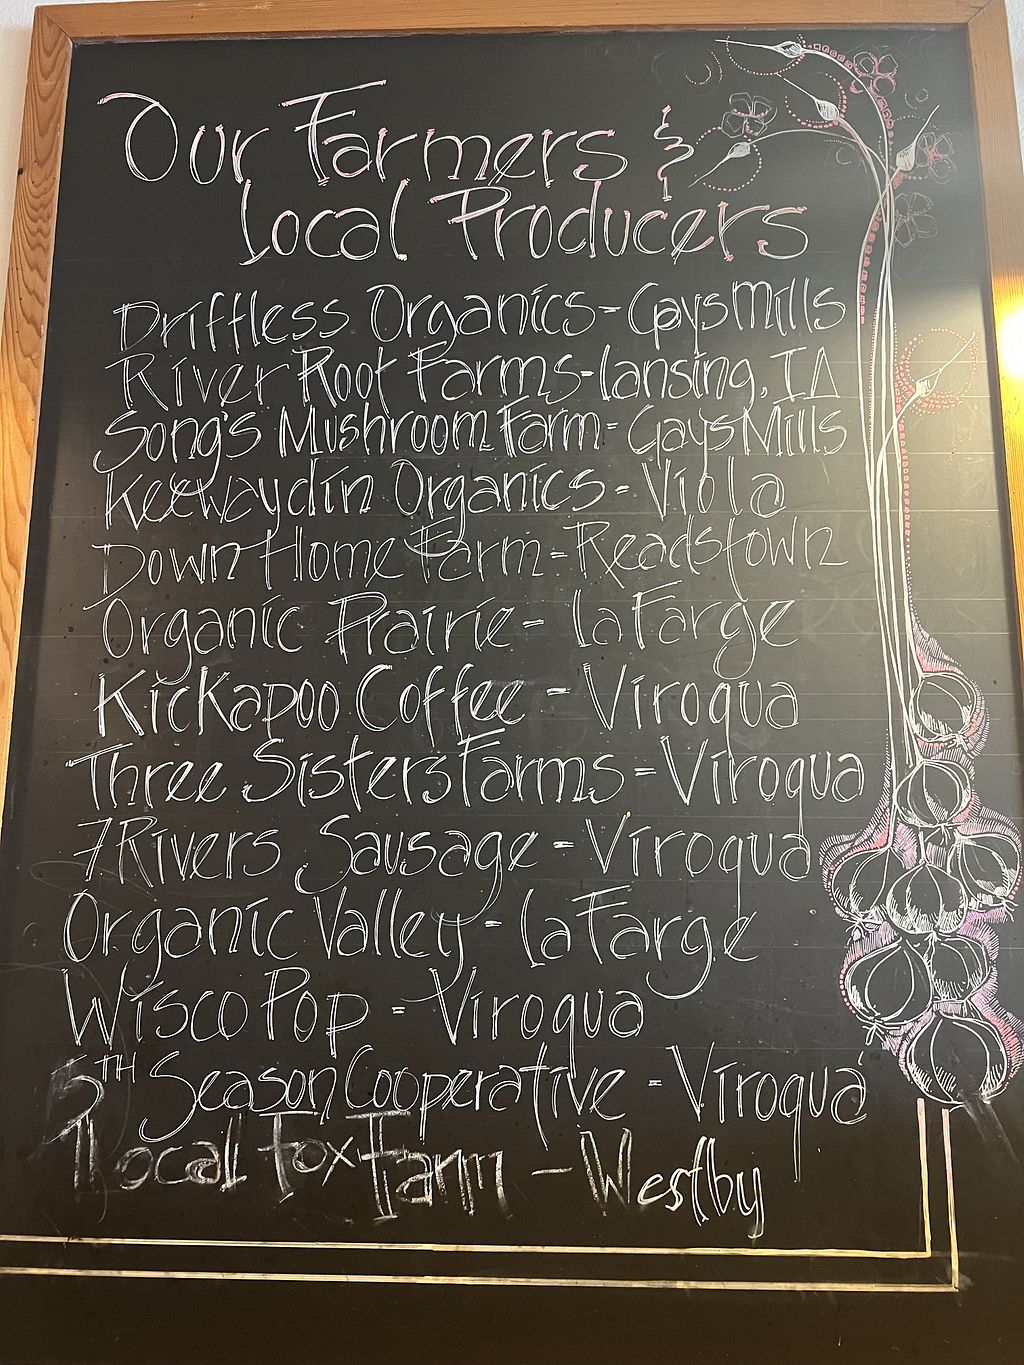 Our Farmers &
Local Producers
Driftless Organics - Gays Mills
River Root Farms - Lansing, IA
Song's Mushroom Farm - Gays Mills
Keewaydin Organics - Viola
Down Home Farm - Readstown
Organic Prairie - La Farge
Kickapoo Coffee - Viroqua
Three Sisters Farms - Viroqua
7 Rivers Sausage - Viroqua
Organic Valley - La Farge
Wisco Pop - Viroqua
5TH Season Cooperative - Viroqua
Local Fox Farm - Westby